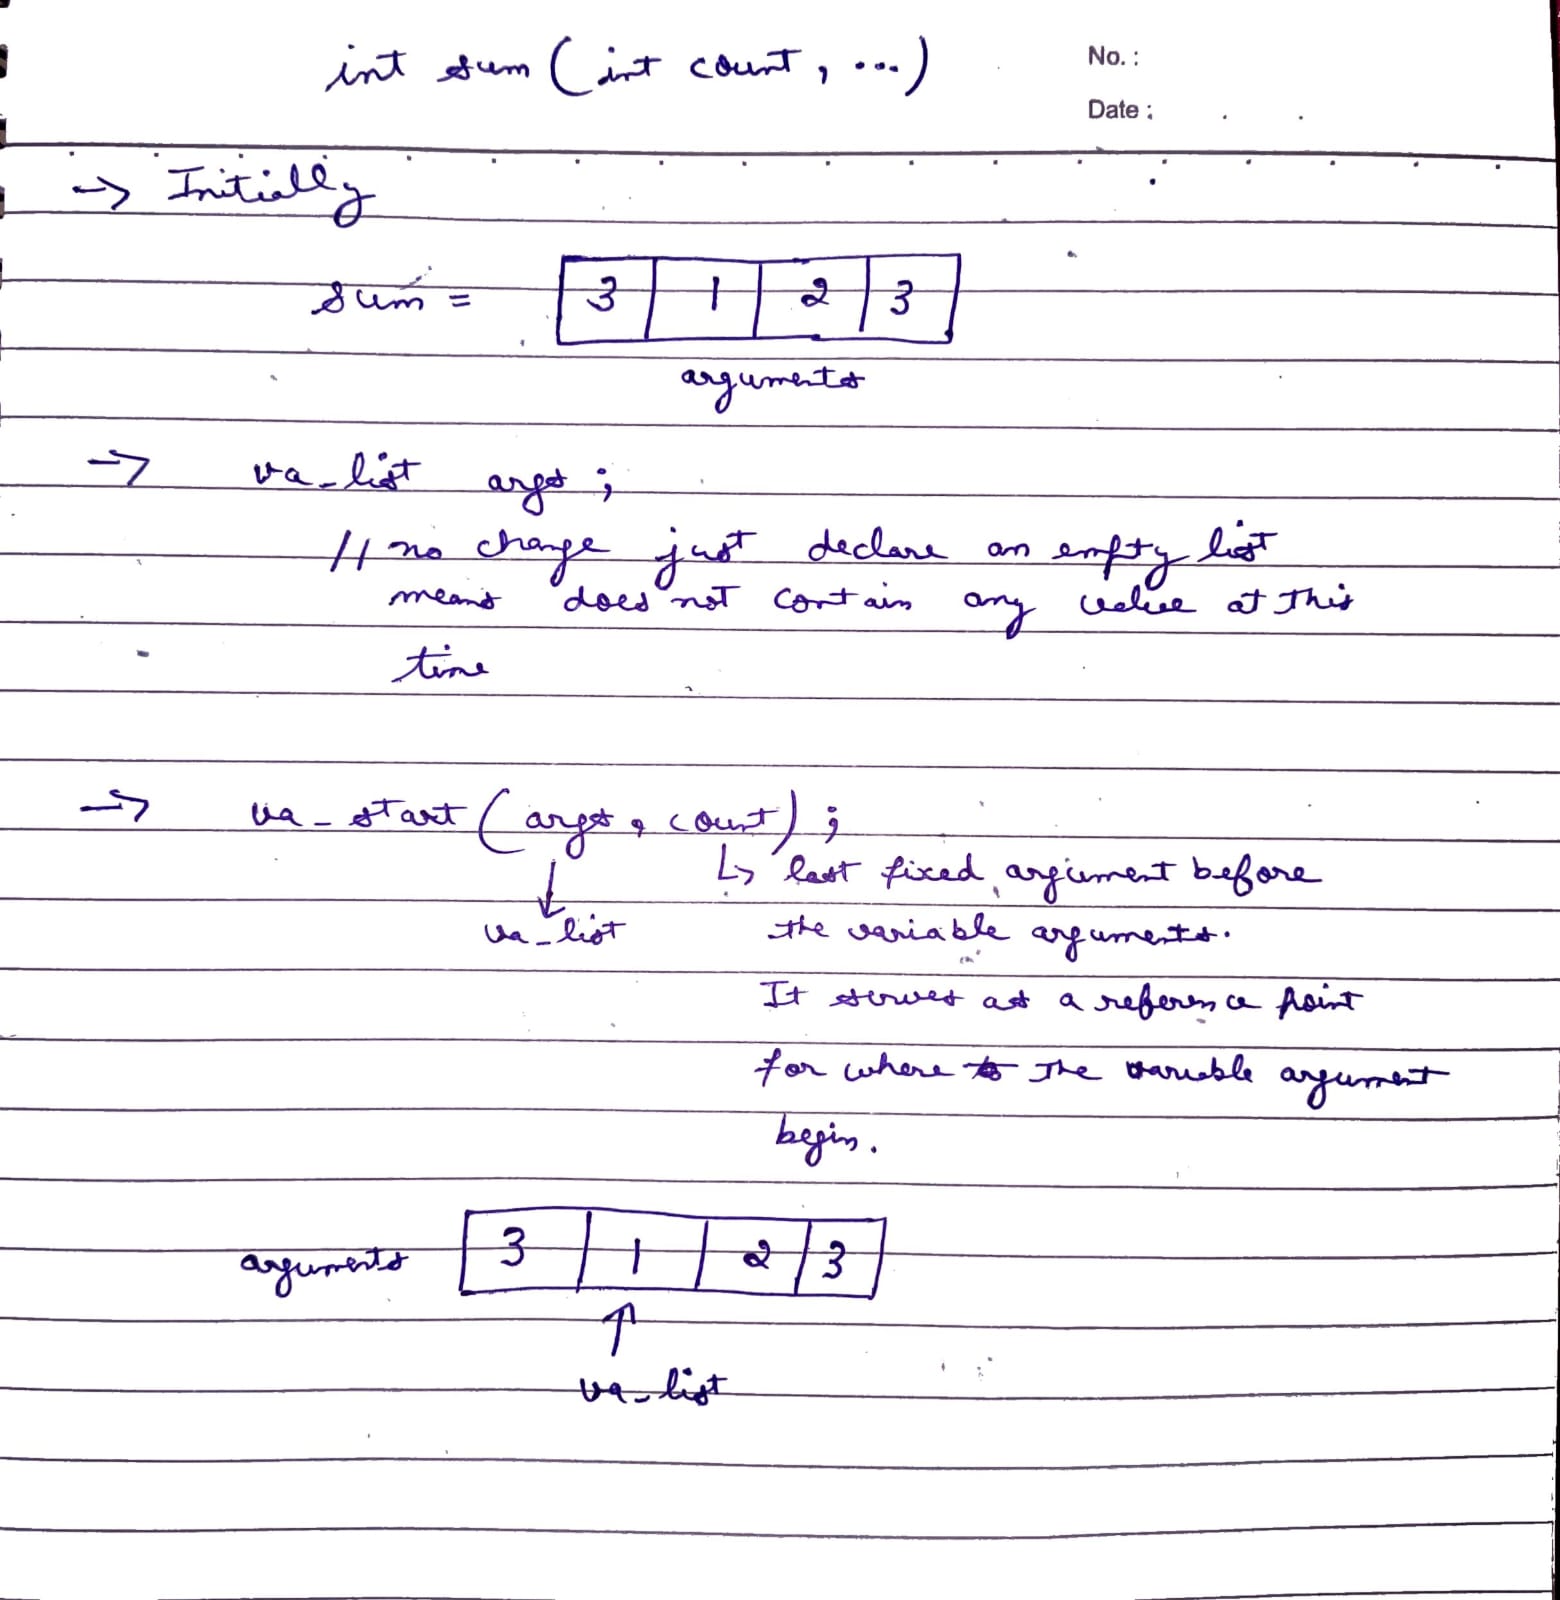 int sum (int count, ...)
No. :
Date :
-> Initially
sum = 3 1 2 3
arguments
-> va_list args ;
// no change just declare an empty list
means does not contain any value at this
time
-> va_start (args, count) ;
↳ last fixed argument before
va_list the variable arguments.
It serves as a reference point
for where the variable argument
begin.
arguments 3 1 2 3
↑
va_list